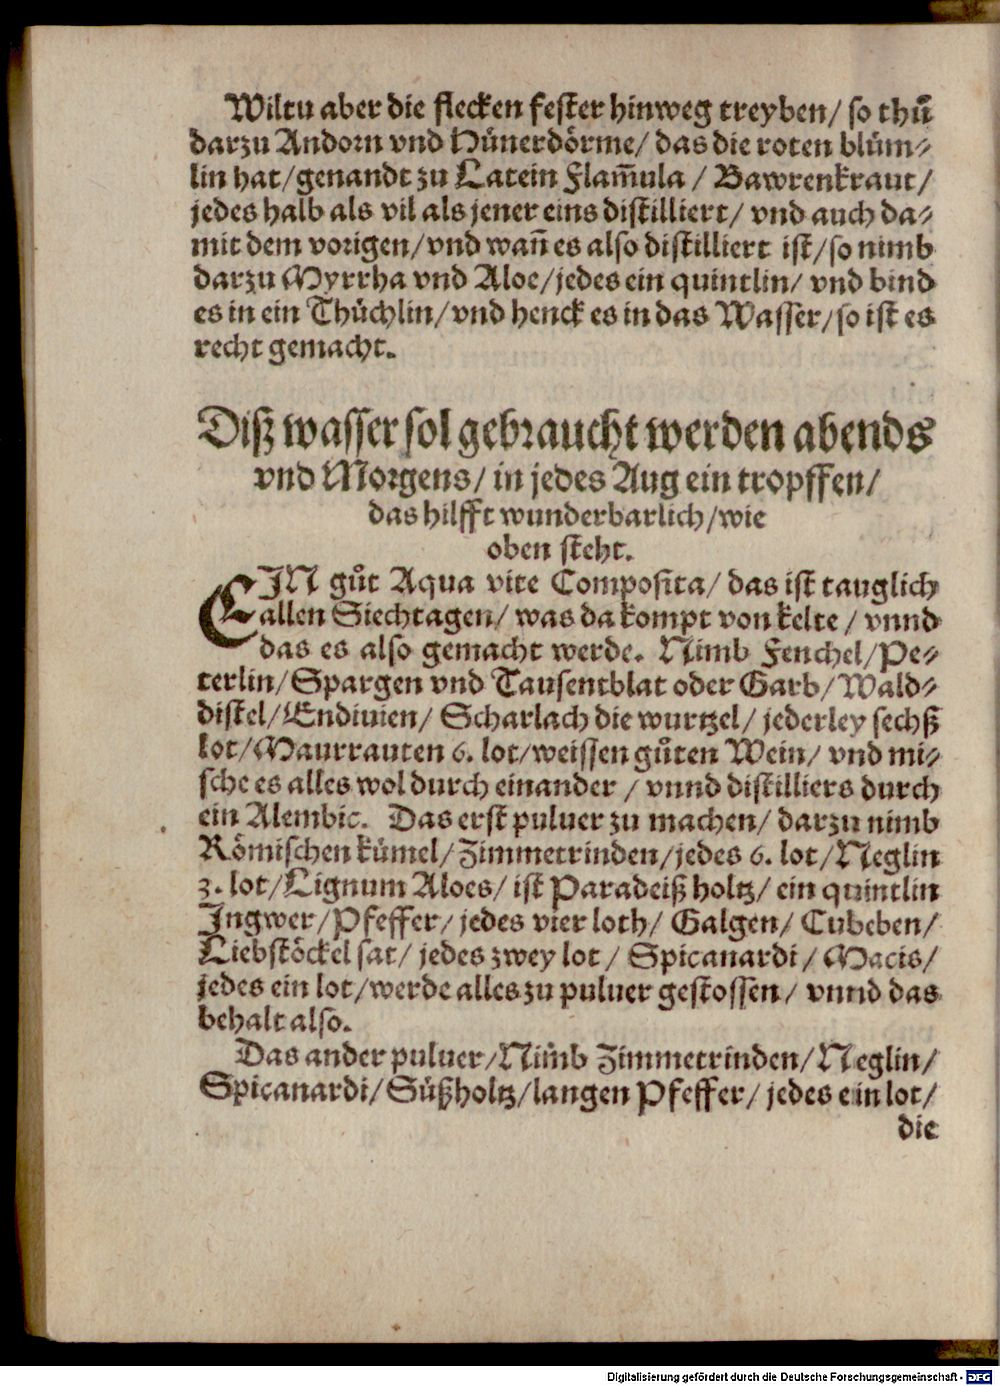 Wiltu aber die flecken fester hinweg treyben/ so thů
darzu Andorn vnd Hünerdörme/ das die roten blüm⸗
lin hat/genandt zu Latein Flam̃ula / Bawrenkraut/
jedes halb als vil als jener eins distilliert/ vnd auch da⸗
mit dem vorigen/vnd wañ es also distilliert ist/so nimb
darzu Myrrha vnd Aloe/jedes ein quintlin/ vnd bind
es in ein Thüchlin/vnd henck es in das Wasser/so ist es
recht gemacht.
Diß wasser sol gebraucht werden abends
vnd Morgens/ in jedes Aug ein tropffen/
das hilfft wunderbarlich/wie
oben steht.
EIN gůt Aqua vite Composita/ das ist tauglich
allen Siechtagen/ was da kompt von kelte / vnnd
das es also gemacht werde. Nimb Fenchel/Pe⸗
terlin/Spargen vnd Tausentblat oder Garb/Wald⸗
distel/Endiuien/ Scharlach die wurtzel/ jederley sechß
lot/Maurrauten 6. lot/weissen gůten Wein/ vnd mi⸗
sche es alles wol durch einander / vnnd distilliers durch
ein Alembic. Das erst puluer zu machen/ darzu nimb
Römischen kümel/Zimmetrinden/jedes 6. lot/Neglin
3. lot/Lignum Aloes/ ist Paradeiß holtz/ ein quintlin
Ingwer/Pfeffer/ jedes vier loth/ Galgen/ Cubeben/
Liebstöckel sat/ jedes zwey lot / Spicanardi / Macis/
jedes ein lot/werde alles zu puluer gestossen/ vnnd das
behalt also.
Das ander puluer/Nimb Zimmetrinden/Neglin/
Spicanardi/Süßholtz/langen Pfeffer/ jedes ein lot/
die
Digitalisierung gefördert durch die Deutsche Forschungsgemeinschaft - DFG